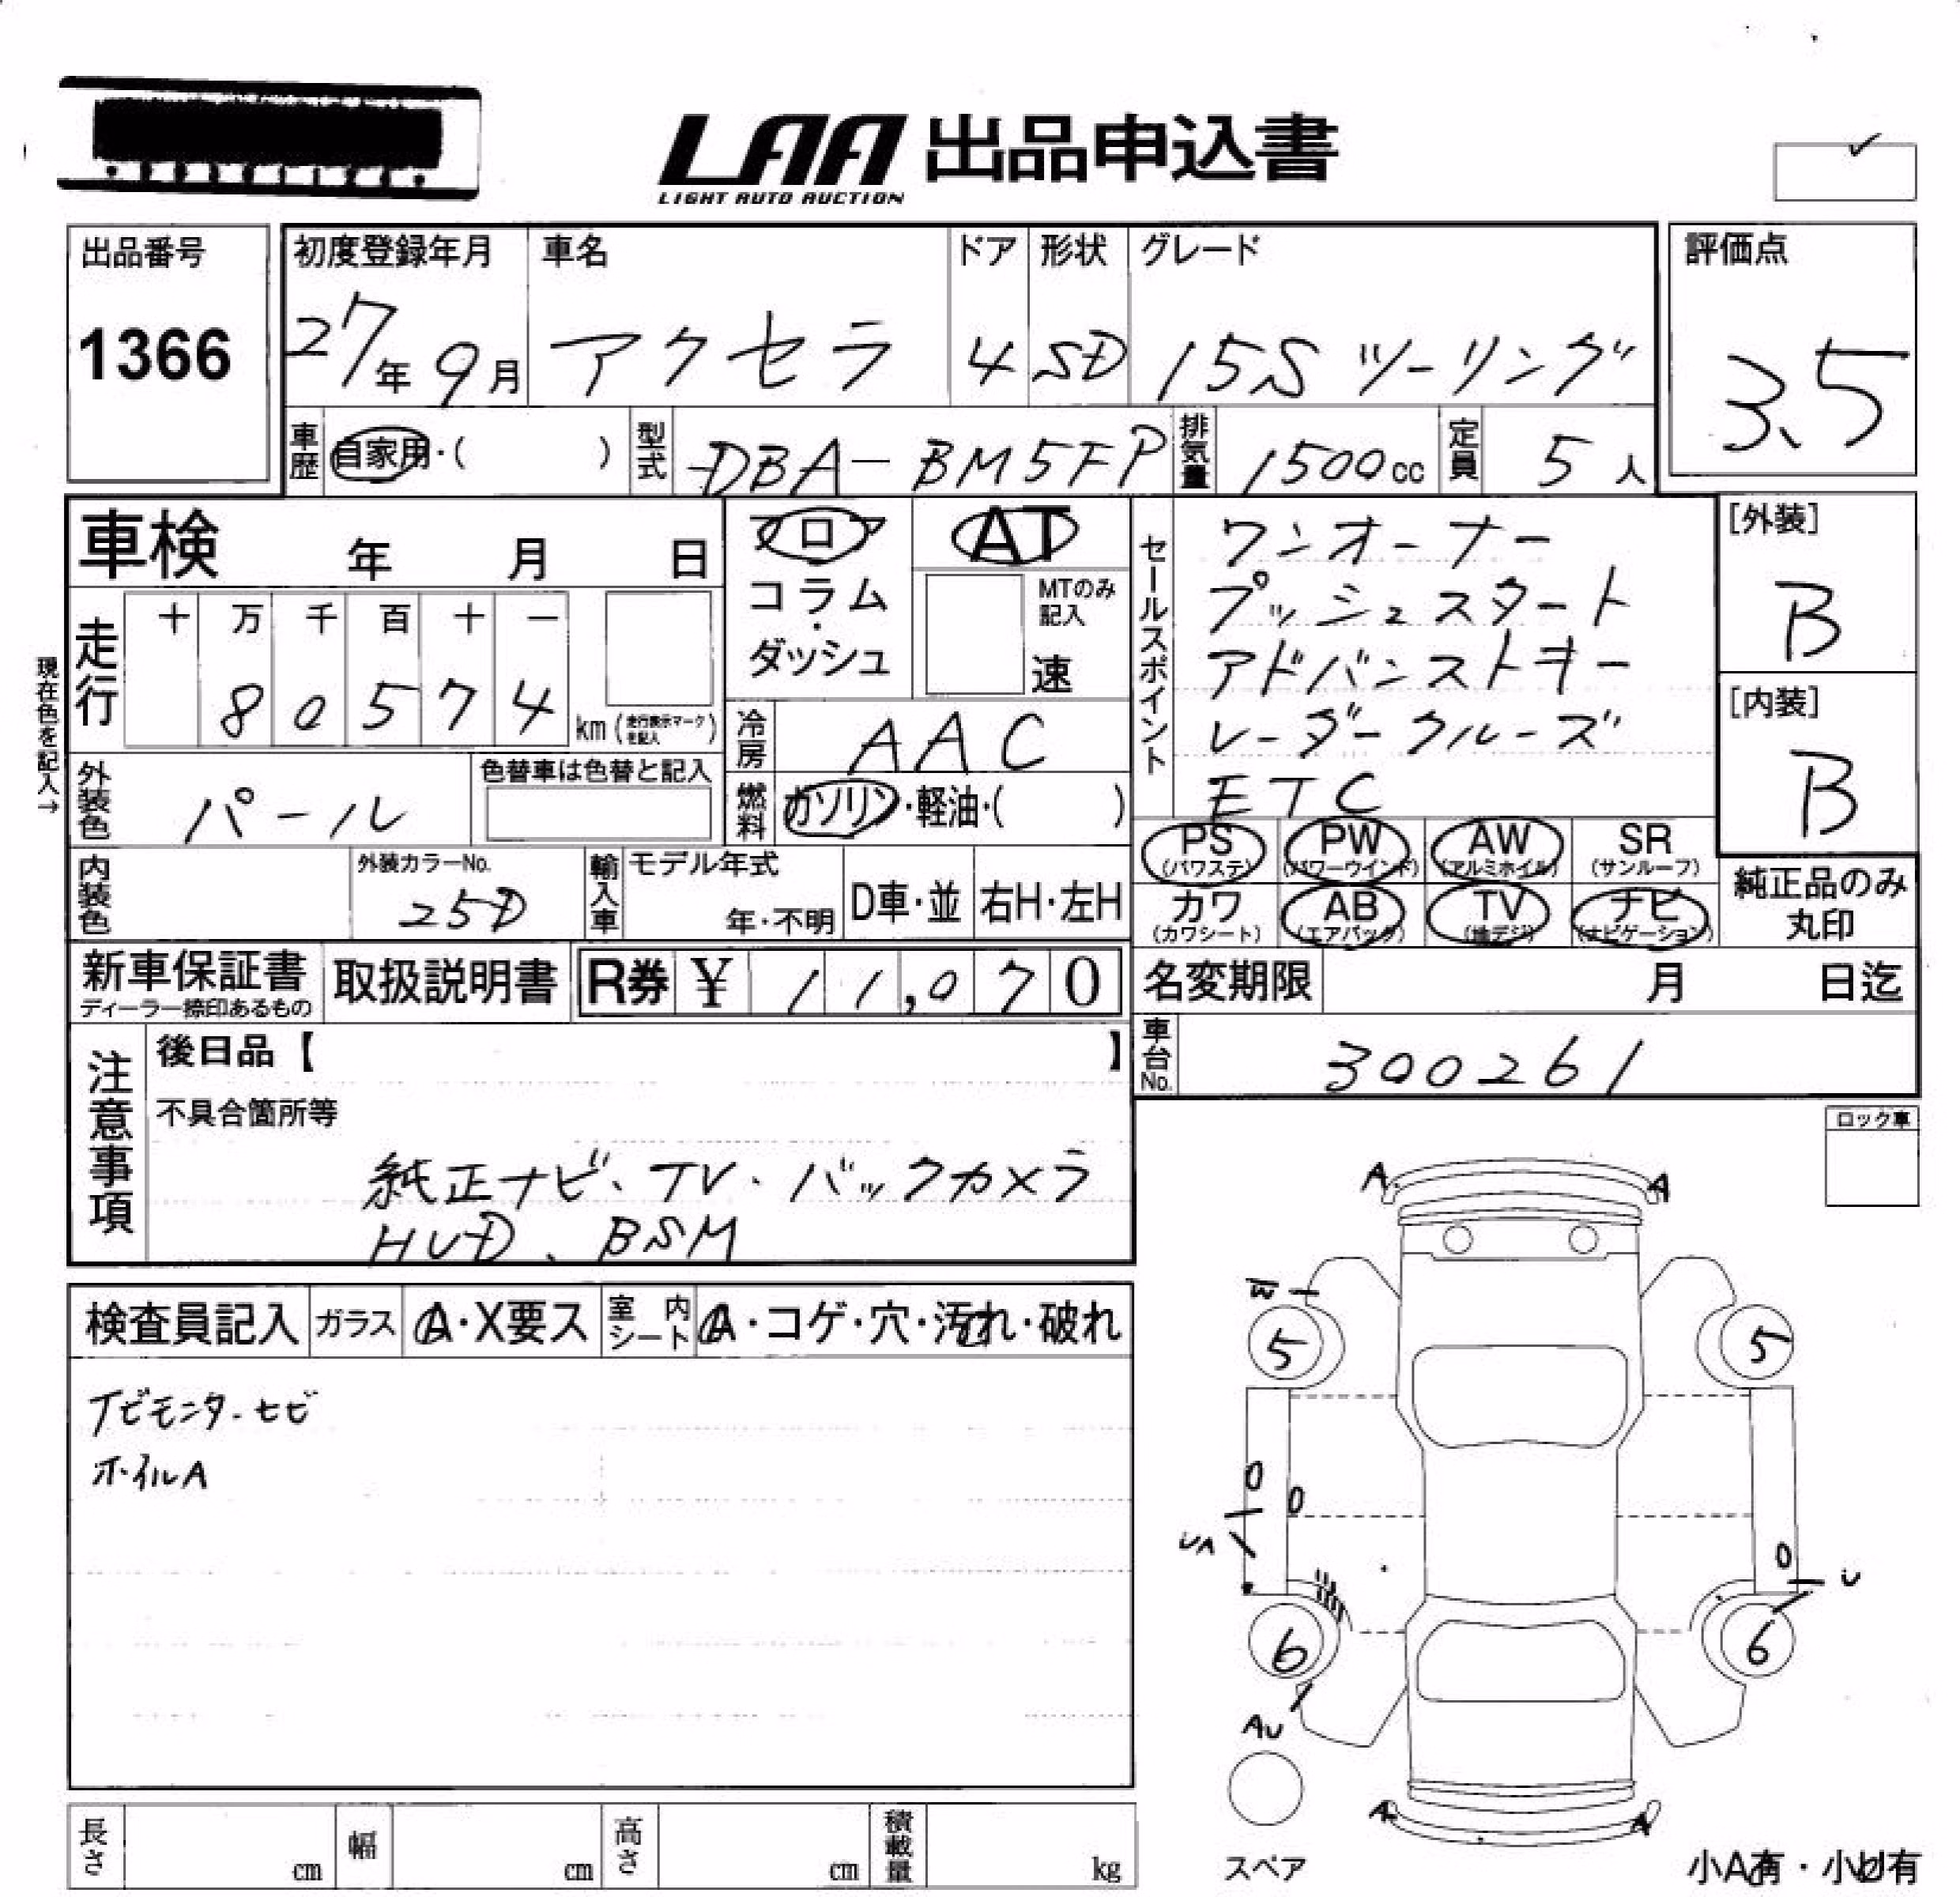 LAA 出品申込書
LIGHT AUTO AUCTION
出品番号
1366
初度登録年月
27年9月
車名
アクセラ
ドア
4
形状
SD
グレード
15S ツーリング
評価点
3.5
車歴 自家用・( )
型式 DBA-BM5FP
排気量 1500cc
定員 5人
車検 年 月 日
フロア
コラム・ダッシュ
AT
MTのみ記入
速
セールスポイント
ワンオーナー
プッシュスタート
アドバンストキー
レーダークルーズ
ETC
[外装]
B
[内装]
B
現在色を記入→
走行
十 万 千 百 十 一
80574
km (走行表示マークを記入)
冷房 AAC
燃料 ガソリン・軽油・( )
外装色 パール
色替車は色替と記入
内装色
外装カラーNo.
25D
輸入車 モデル年式
年・不明
D車・並
右H・左H
PS (パワステ)
PW (パワーウインド)
AW (アルミホイル)
SR (サンルーフ)
カワ (カワシート)
AB (エアバック)
TV (地デジ)
ナビ (ナビゲーション)
純正品のみ丸印
新車保証書
ディーラー捺印あるもの
取扱説明書
R券 ¥ 11,070
名変期限 月 日迄
車台No. 300261
注意事項
後日品【 】
不具合箇所等
純正ナビ、TV、バックカメラ
HUD、BSM
ロック車
検査員記入
ガラス A・X要ス
室内シート A・コゲ・穴・汚れ・破れ
ホイルA
A A
W
5 5
UA
U
6 6
AU
A A
スペア
小A有・小U有
長さ cm
幅 cm
高さ cm
積載量 kg